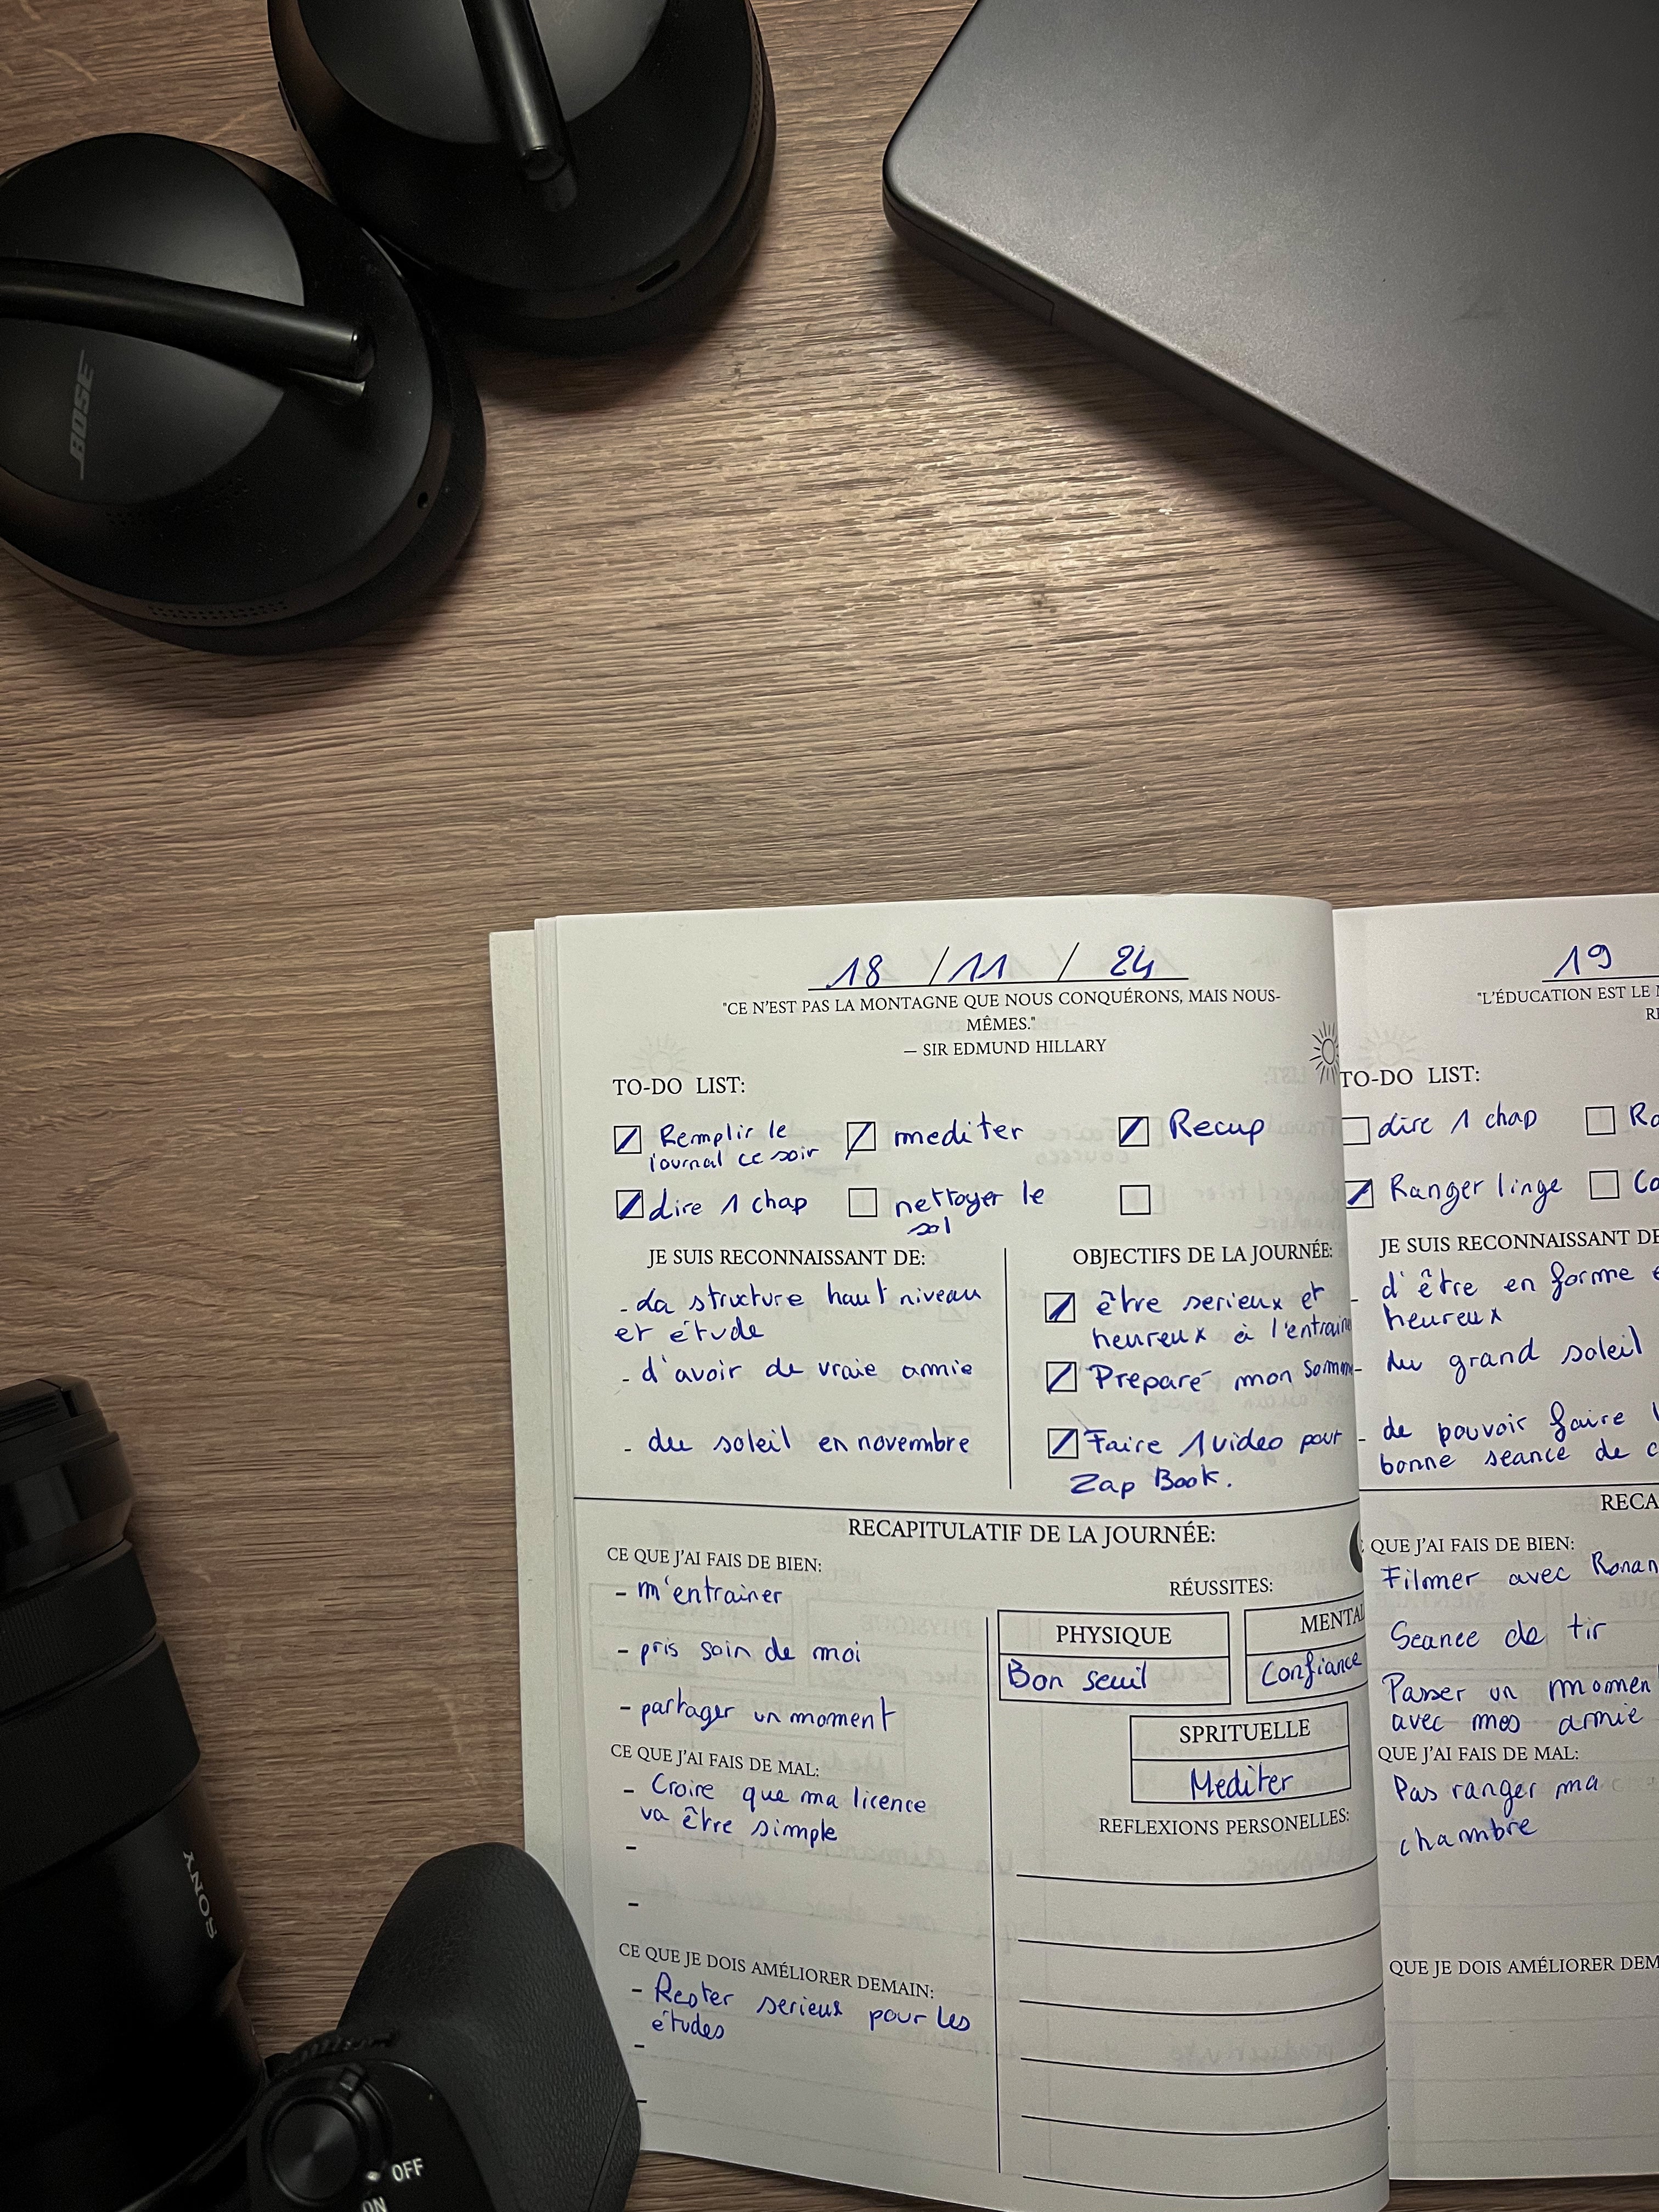 BOSE
18 / 11 / 24
"CE N'EST PAS LA MONTAGNE QUE NOUS CONQUÉRONS, MAIS NOUS-
MÊMES."
— SIR EDMUND HILLARY
TO-DO LIST:
Remplir le
journal ce soir
mediter
Recup
dire 1 chap
nettoyer le
sol
JE SUIS RECONNAISSANT DE:
- La structure haut niveau
et étude
- d'avoir de vraie amie
- du soleil en novembre
OBJECTIFS DE LA JOURNÉE:
être serieux et
heureux à l'entraine
Preparé mon somm
Faire 1 video pour
Zap Book.
RECAPITULATIF DE LA JOURNÉE:
CE QUE J'AI FAIS DE BIEN:
- m'entrainer
- pris soin de moi
- partager un moment
CE QUE J'AI FAIS DE MAL:
- Croire que ma licence
va être simple
-
-
CE QUE JE DOIS AMÉLIORER DEMAIN:
- Rester serieux pour les
études
-
-
RÉUSSITES:
PHYSIQUE
Bon seuil
MENTAL
Confiance
SPRITUELLE
Mediter
REFLEXIONS PERSONELLES:
19
"L'ÉDUCATION EST LE
TO-DO LIST:
dire 1 chap
Ranger linge
JE SUIS RECONNAISSANT DE
- d'être en forme e
heureux
- du grand soleil
- de pouvoir faire
bonne seance de c
RECA
QUE J'AI FAIS DE BIEN:
Filmer avec Ronan
Seance de tir
Passer un momen
avec mes amie
QUE J'AI FAIS DE MAL:
Pas ranger ma
chambre
QUE JE DOIS AMÉLIORER DEM
SONY
OFF
ON